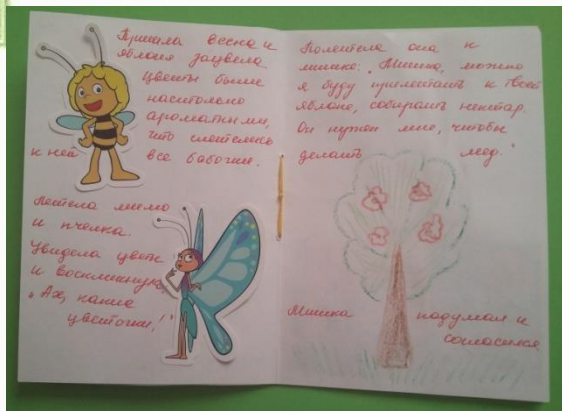 Пришла весна и
яблоня зацвела
Цветы были
настолько
ароматными,
что слетелись
к ней все бабочки.
Летела мимо
и пчелка.
Увидела цветы
и воскликнула
„Ах, какие
цветочки!"
Полетела она к
мишке: „Мишка, можно
я буду прилетать к твоей
яблоне, собирать нектар.
Он нужен мне, чтобы
делать мёд."
Мишка подумал и
согласился.